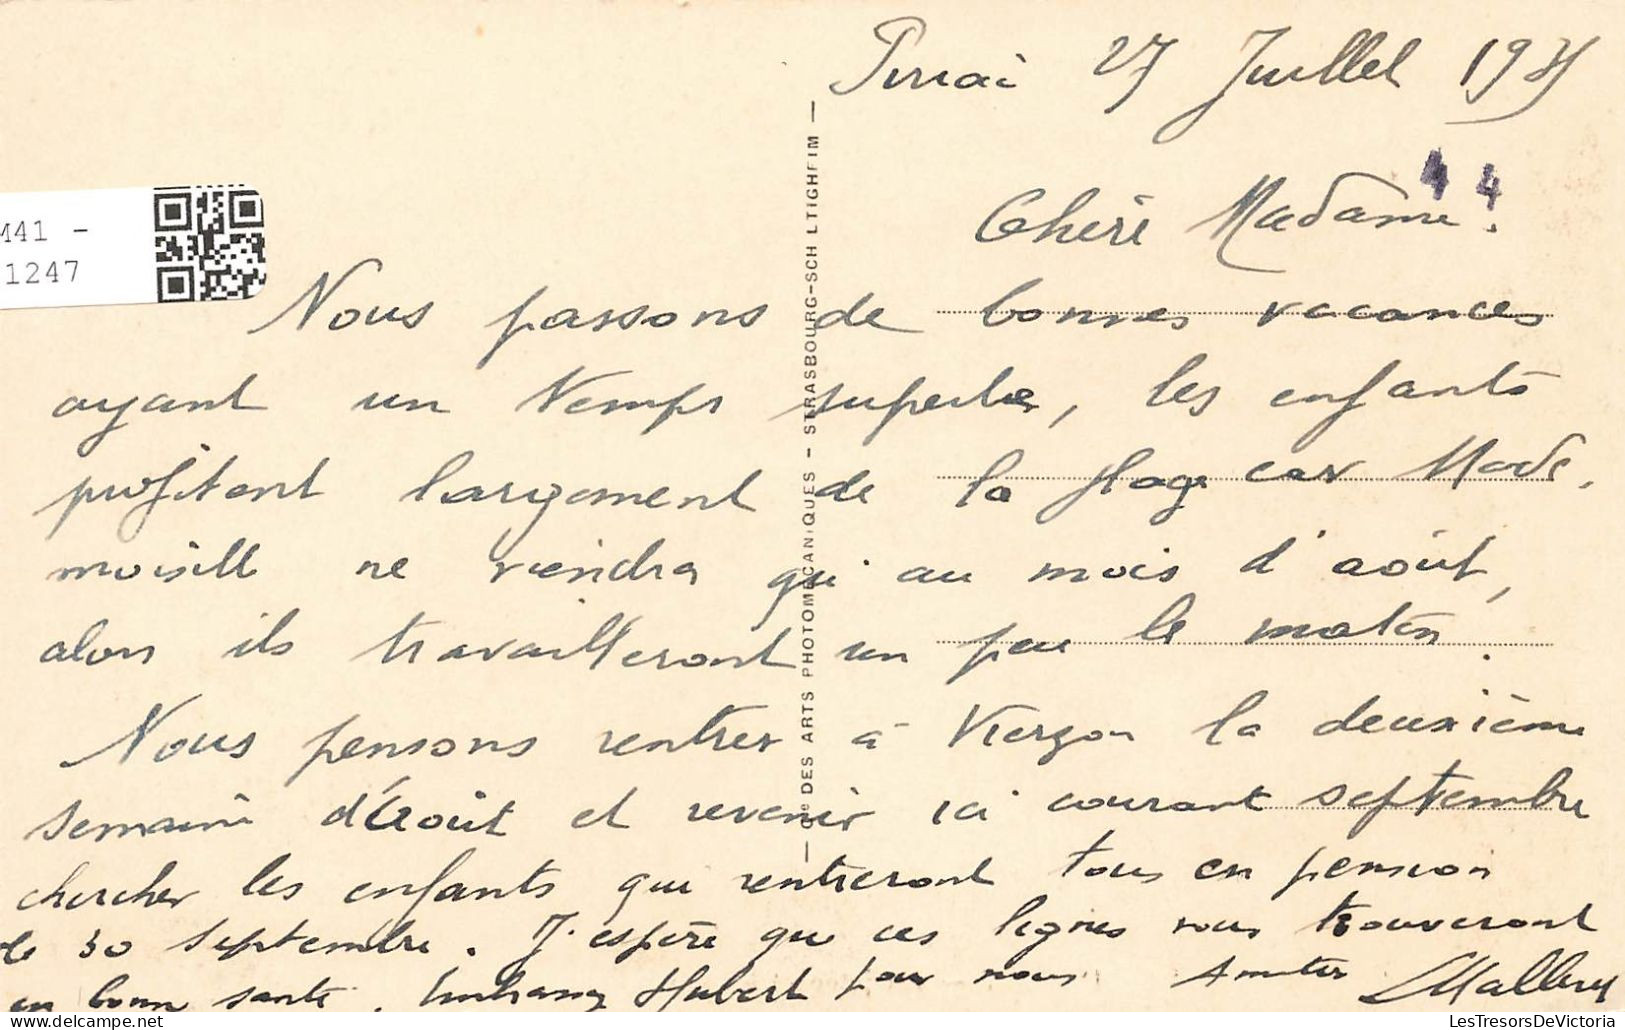 27 Juillet 19
44
Chère Madame.
M41 -
1247
Nous passons de bonnes vacances
ayant un temps superbe, les enfants
profitent largement de la plage car Made.
moiselle ne viendra qu'au mois d'août,
alors ils travailleront un peu le matin.
Nous pensons rentrer à Vierzon la deuxième
semaine d'Août et revenir ici courant septembre
chercher les enfants qui rentreront tous en pension
le 30 septembre. J'espère que ces lignes vous trouveront
en bonne santé. Embrassez Hubert pour nous. Amitiés
Cie DES ARTS PHOTOMECANIQUES - STRASBOURG-SCHILTIGHEIM
LesTresorsDeVictoria